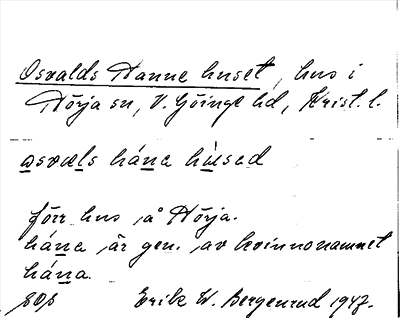 Osvalds Hanne huset, hus i
Hörja sn, V. Göinge hd, Krist. l.
osvals hána húsed
förr hus å Hörja.
hána är gen. av kvinnonamnet
hána.
Erik W. Bergenrud 1947.